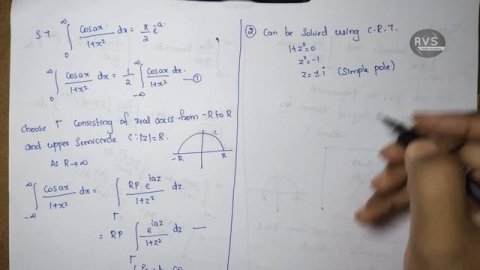 S.T. ∫₀^∞ cosax/(1+x²) dx = π/2 e^-a.
∫₀^∞ cosax/(1+x²) dx = 1/2 ∫_-∞^∞ cosax/(1+x²) dx. ①
choose Γ consisting of real axis from -R to R
and upper semicircle C: |z|=R.
As R→∞
C
-R R
∫_-∞^∞ cosax/(1+x²) dx = ∫_Γ R.P. e^iaz/(1+z²) dz.
= RP ∫_Γ e^iaz/(1+z²) dz —
② Can be solved using C.R.T.
1+z²=0
z²=-1
z=±i (simple pole)
RVS